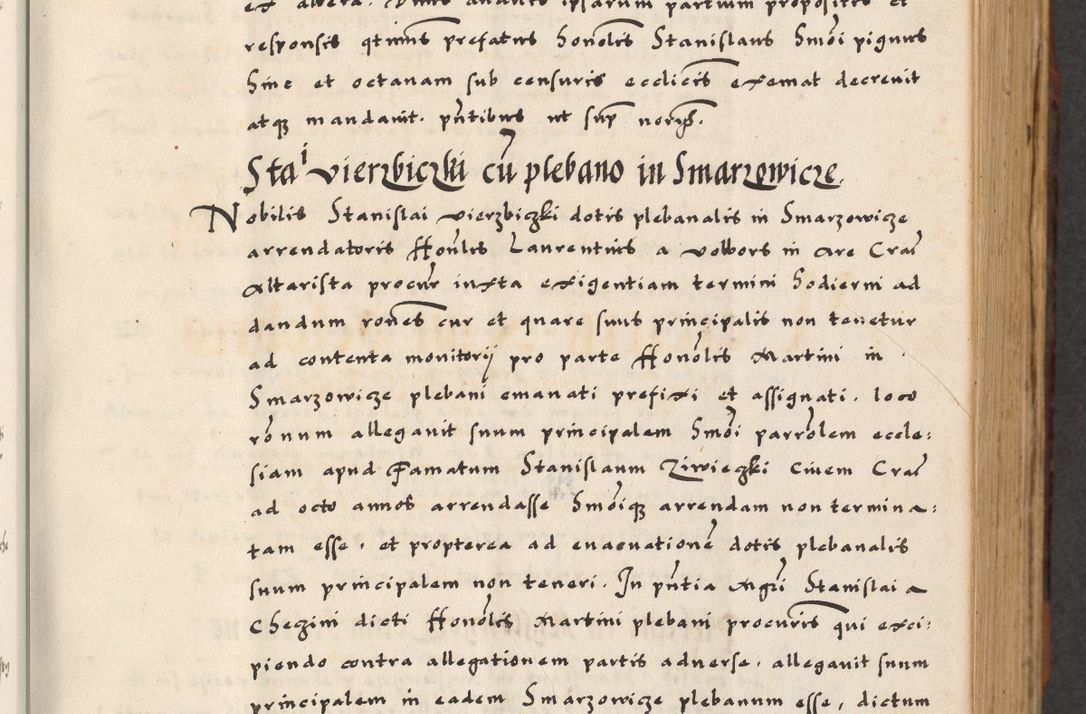 et altera. Unus ananus ipsarum partium propositis et
responsis qtimus prefatus honolis Stanislaus hmoi pignus
hinc et octanam sub censuris ecclicis eximat decrevit
atq3 mandavit. pntibus ut sup noris.
Stai vierzbiczki cu plebano in Smarzowicze.
Nobilis Stanislai vierzbiczki dotis plebanalis in Smarzowicze
arrendatoris Honlis Laurentius a volbors in Are Crac
Altarista procur iuxta exigentiam termini hodierni ad
dandum rones cur et quare suus principalis non tenetur
ad contenta monitorij pro parte Honolis Martini in
Smarzowicze plebani emanati prefixi et assignati. loco
ronum allegavit suum principalem hmoi parrolem eccle:
siam apud Famatum Stanislaum Ziwieczki civem Crac
ad octo annos arrendasse hmoiq3 arrendam non termina:
tam esse, et propterea ad evacuatione dotis plebanalis
suum principalem non teneri. In pntia Mgri Stanislai a
Checzini dicti Honolis Martini plebani procuris qui exci:
piendo contra allegationem partis adverse, allegavit suum
principalem in eadem Smarzowicze plebanum esse, dictum